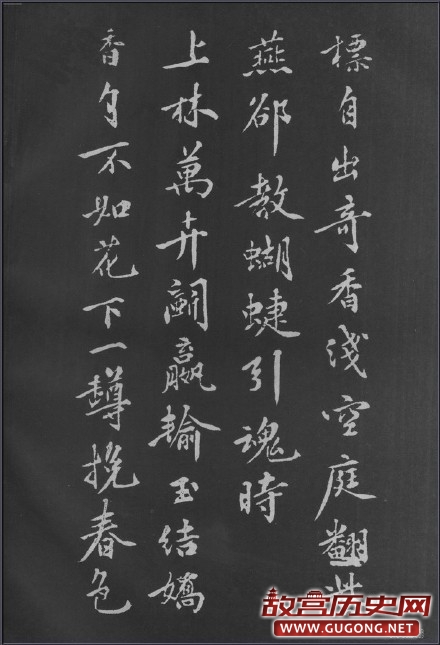 標自出奇香淺空庭翻紫
燕郤教蝴蜨引魂時
上林萬卉鬭嬴輸玉結嬌
香勻不如花下一罇挽春色
故宫历史网
WWW.GUGONG.NET